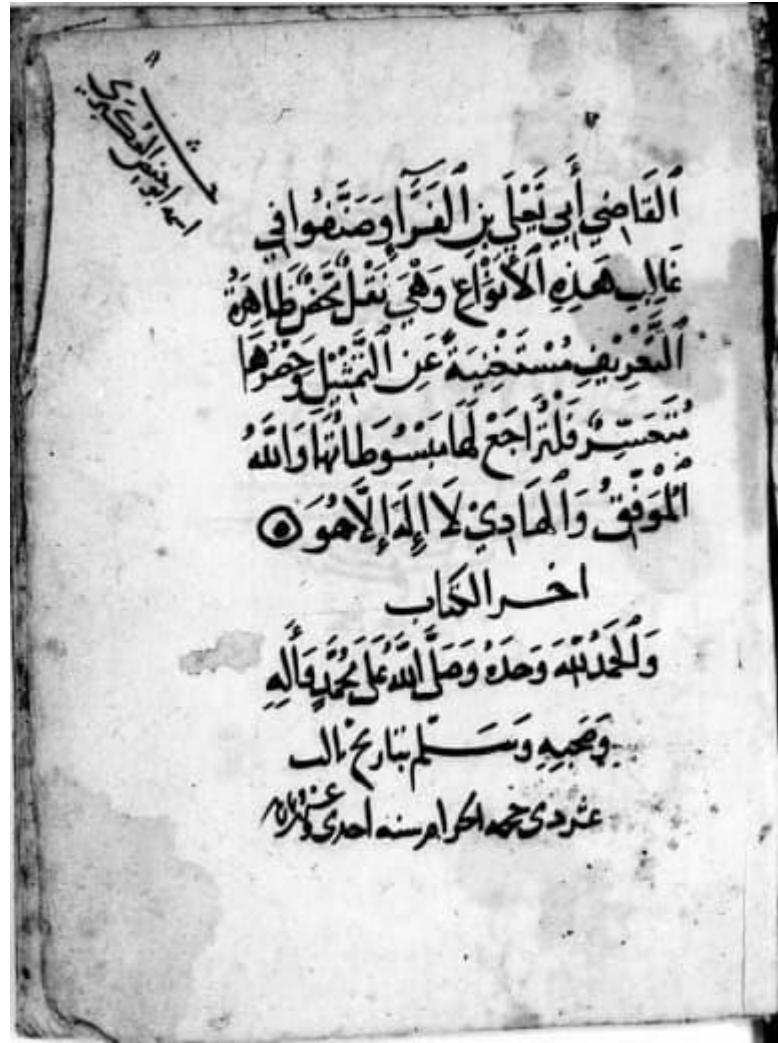 اسمه ابو حفص العكبري
ٱلقَاضِي أَبِي يَعْلَى بنِ ٱلفَرَّآءِ وَصَنَّفُوا فِي
غَالِبِ هَذِهِ ٱلأَنْوَاعِ وَهْيَ نَقْلٌ مَحْضٌ ظَاهِرَةُ
ٱلتَّعْرِيْفِ مُسْتَغْنِيَةٌ عَنِ ٱلتَّمْثِيْلِ وَحَصْرُهَا
مُتَعَسِّرٌ فَلْتُرَاجَعْ لَهَا مَبْسُوطَاتُهَا وَاللهُ
ٱلْمُوَفِّقُ وَٱلهَادِيْ لَا إِلَهَ إِلَّا هُوَ ۞
اخر الكتاب
وَٱلْحَمْدُ للهِ وَحْدَهُ وَصَلَّى اللهُ عَلَى مُحَمَّدٍ وَأَلِهِ
وَصَحْبِهِ وَسَلم بتاريخ ثالث
عشر ذي حجه الحرام سنه احدى